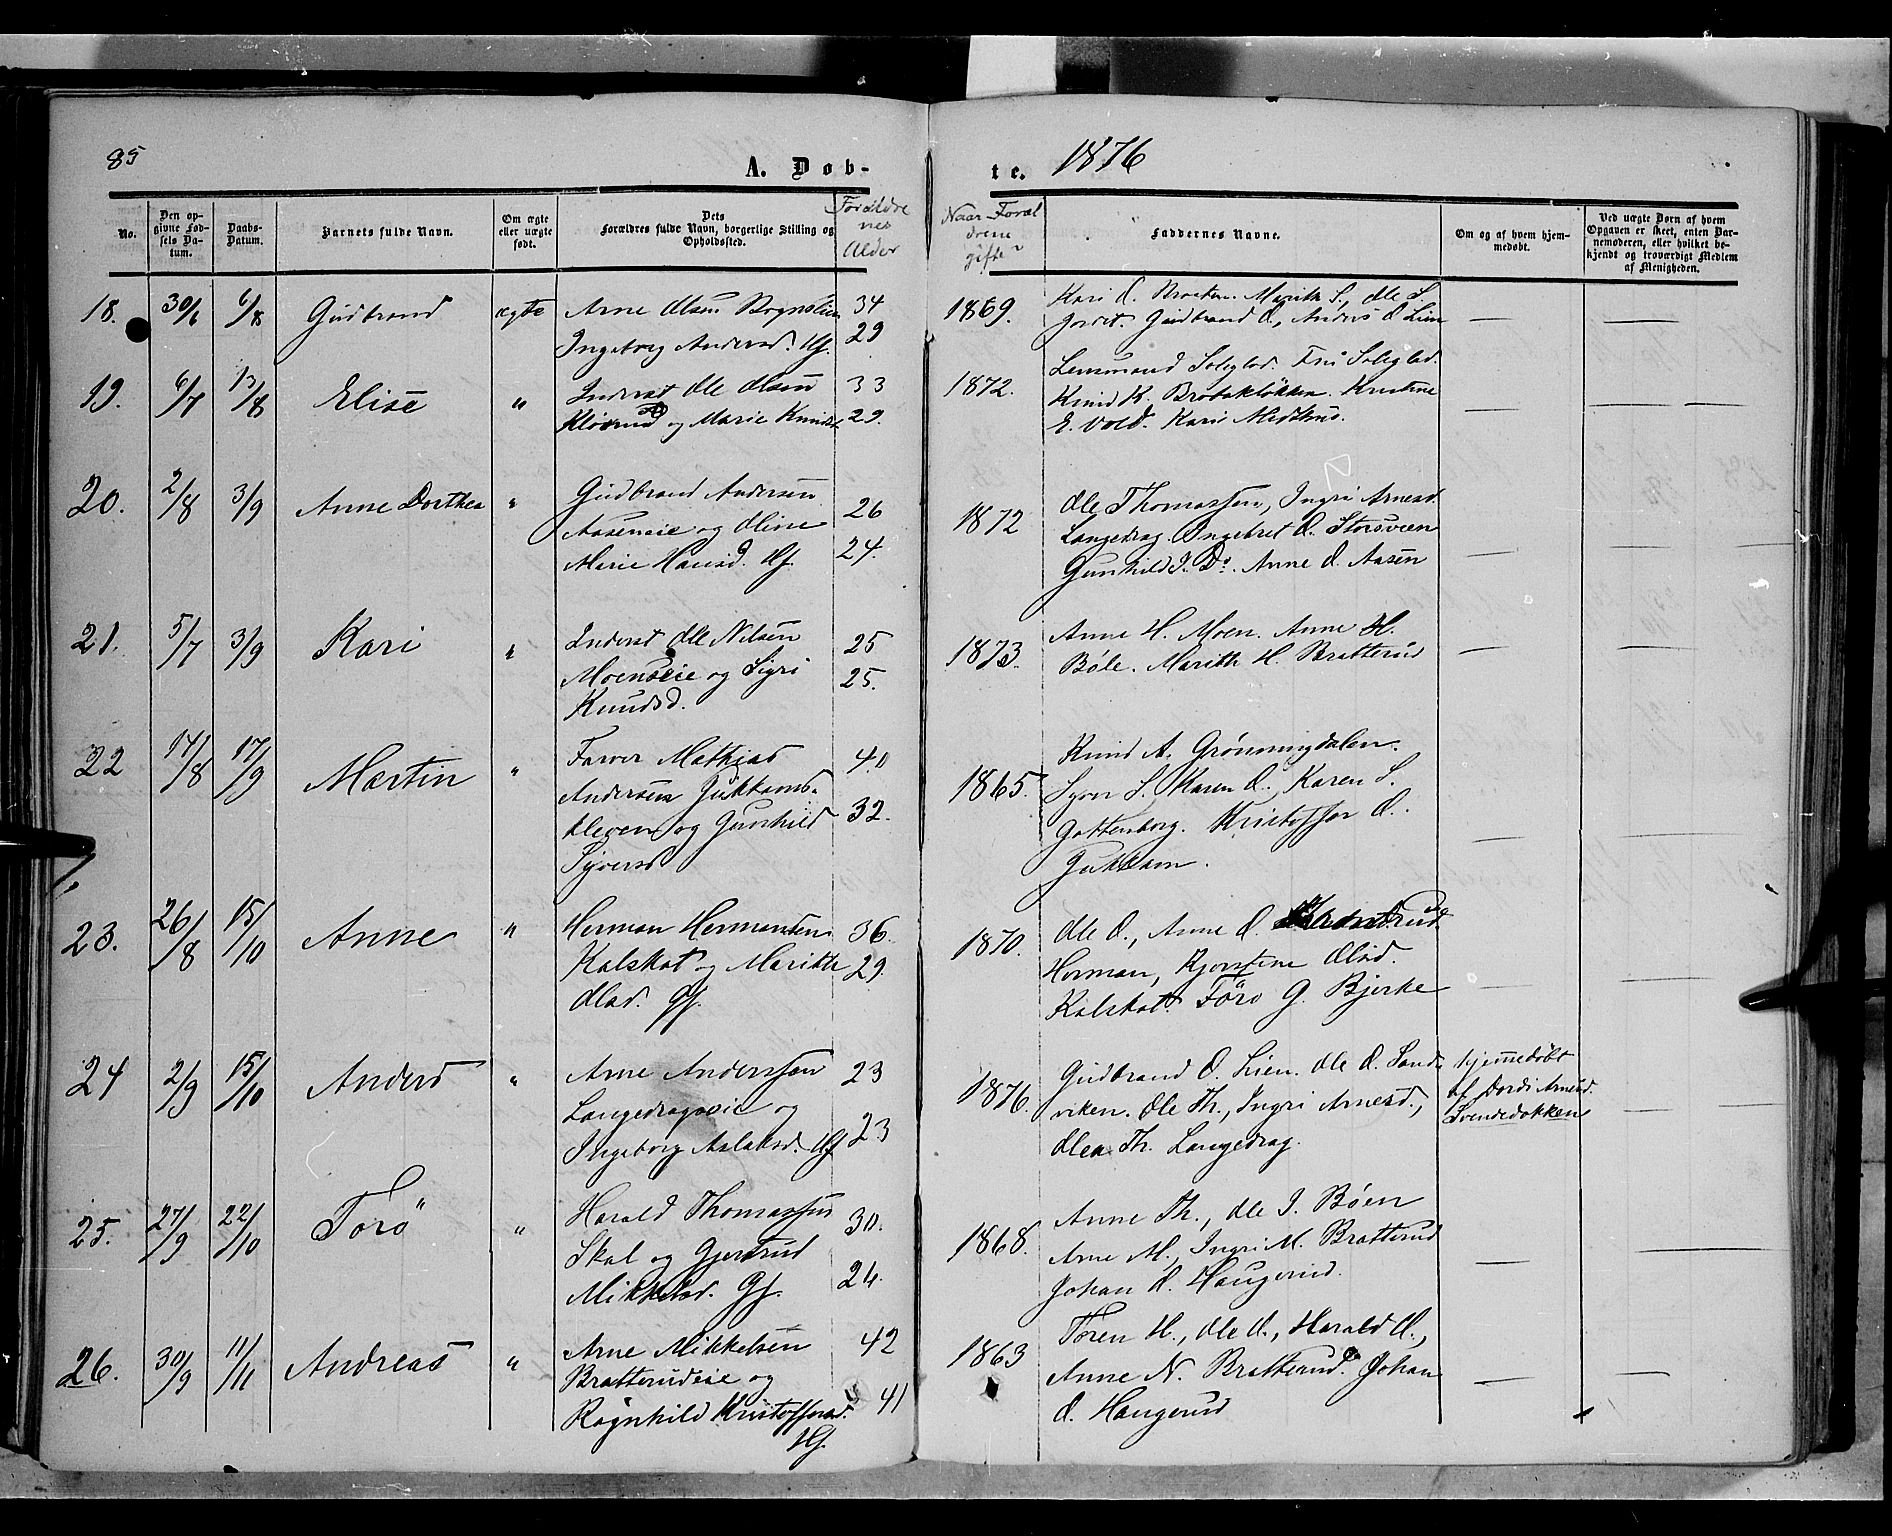 85
A. Døb-
te. 1876
No.
Den opgivne Fødsels Datum.
Daabs-Datum.
Barnets fulde Navn.
Om ægte eller uægte født.
Dets Forældres fulde Navn, borgerlige Stilling og Opholdssted.
Forældrenes Alder
Naar Forældrene gifte
Faddernes Navne.
Om og af hvem hjemmedøbt.
Ved uægte Børn af hvem Opgaven er skeet, enten Barnemoderen, eller hvilket bekjendt og troværdigt Medlem af Menigheden.
18. 30/6 6/8 Gudbrand ægte Arne Olsen 34
Ingeborg Andersd. Hf. 29
1869. Kari O. Braaten. Marith S., Ole S.
Jordet. Gudbrand O., Anders O. Lien — —
19. 6/7 13/8 Elise " Inderst Ole Olsen 33
og Marie Knudsd. 29.
1872. Lensmand Soleglad. Fru Soleglad.
Knud K. Brobakløkken. Kristine
E. Vold. Kari Medthus. — —
20. 2/8 3/9 Anne Dorthea " Gudbrand Andersen 26
Aaseneie og Oline
Marie Hansd. Hf. 24.
1872 Ole Thomassen, Ingri Arnesd.
Langedrag. Ingebret O. Storsveen
Gunhild I. Do. Anne O. Aasen — —
21. 5/7 3/9 Kari " Inderst Ole Nilsen 25
Moenseie og Sigri 25.
Knudsd.
1873. Anne H. Moen. Anne H.
Bøle. Marith H. Bratterud — —
22 14/8 17/9 Martin " Farver Mathias 40
Andersen Gulhams-
kleven og Gunhild 32.
Syversd
1865. Knud A. Grønningdalen.
Syver S. Karen O., Karen S.
Gottenborg. Kristoffer O.
— —
23. 26/8 15/10 Anne " Herman Hermansen 36.
Kalskat og Marith 29.
Olsd. Gf.
1870. Ole O., Anne O.
Herman, Kjerstine Olsd.
Kalskat. Törö G. Bjerke — —
24 2/9 15/10 Anders " Arne Anderssen 23
Langedragseie og
Ingeborg Aslaksd. Hf 23
1876. Gudbrand O. Lien. Ole O. Sand-
viken. Ole Th., Ingri Arnesd.,
Olea Th. Langedrag.
hjemmedøbt
af Dordi Arnesd.
Svendedokken —
25. 27/9 22/10 Törö " Harald Thomassen 30.
Skal og Gjertrud
Mikkelsd. Gf. 24.
1868. Anne Th., Ole I. Bøen
Arne M., Ingri M. Bratterud
Johan O. Haugerud. — —
26. 30/9 11/11 Andreas " Arne Mikkelsen 42
Bratterudeie og
Ragnhild Kristoffersd. 41
Hf.
1863 Toren H., Ole O., Harald O.,
Anne N. Bratterud. Johan
O. Haugerud — —